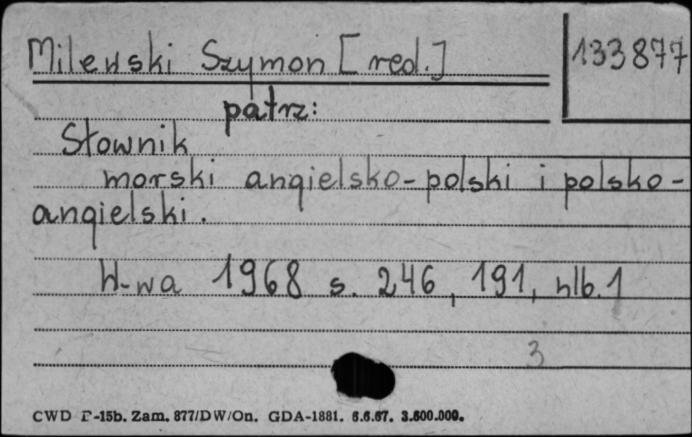 Milewski Szymon [red.]
133877
patrz:
Słownik
morski angielsko-polski i polsko-
angielski.
W-wa 1968 s. 246, 191, nlb. 1
3
CWD F-15b. Zam. 877/DW/On. GDA-1881. 6.6.67. 3.600.000.